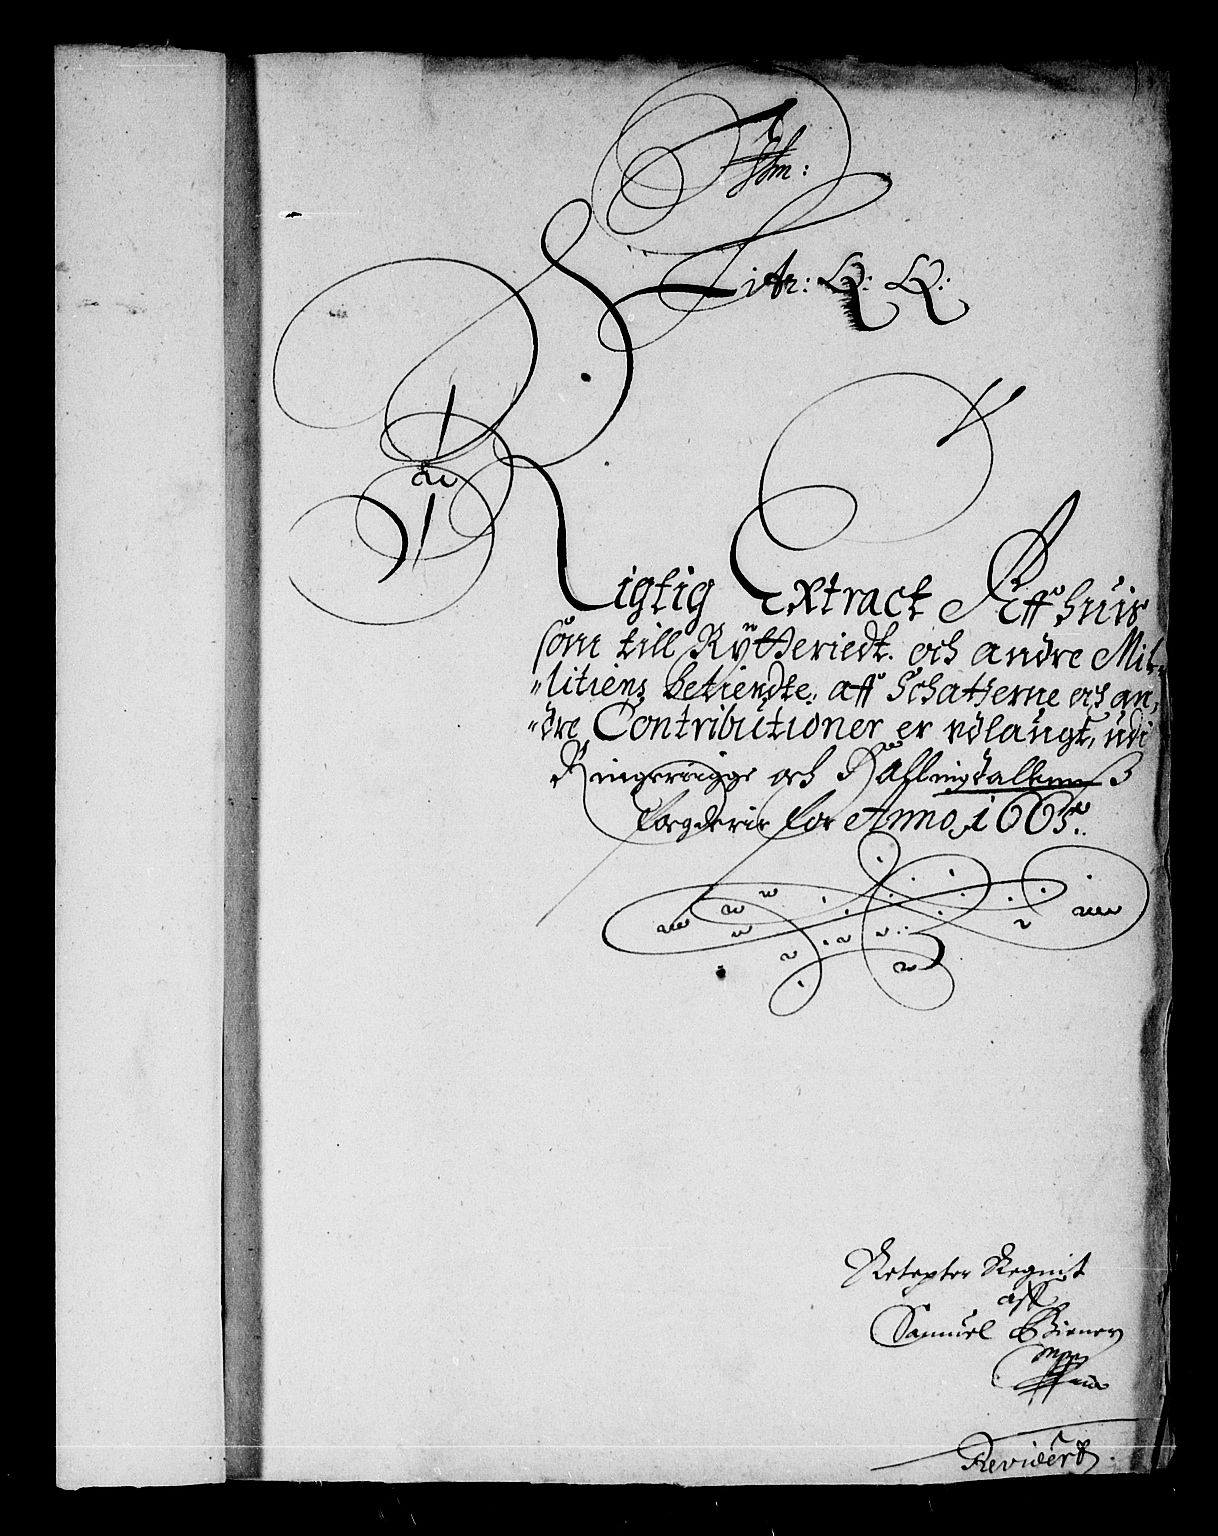 Litr: Q: Q:
Rigtig Extract Aff huis
som till Rytteriedt. och andre Mil„
„litiens betiendte. aff Schatterne och an„
„dre Contributioner er udlaugt, udi
Ringerrigge och Hallingdallens
fogderie for Anno 1665.
Regnit
aff
Samuel
Revidert